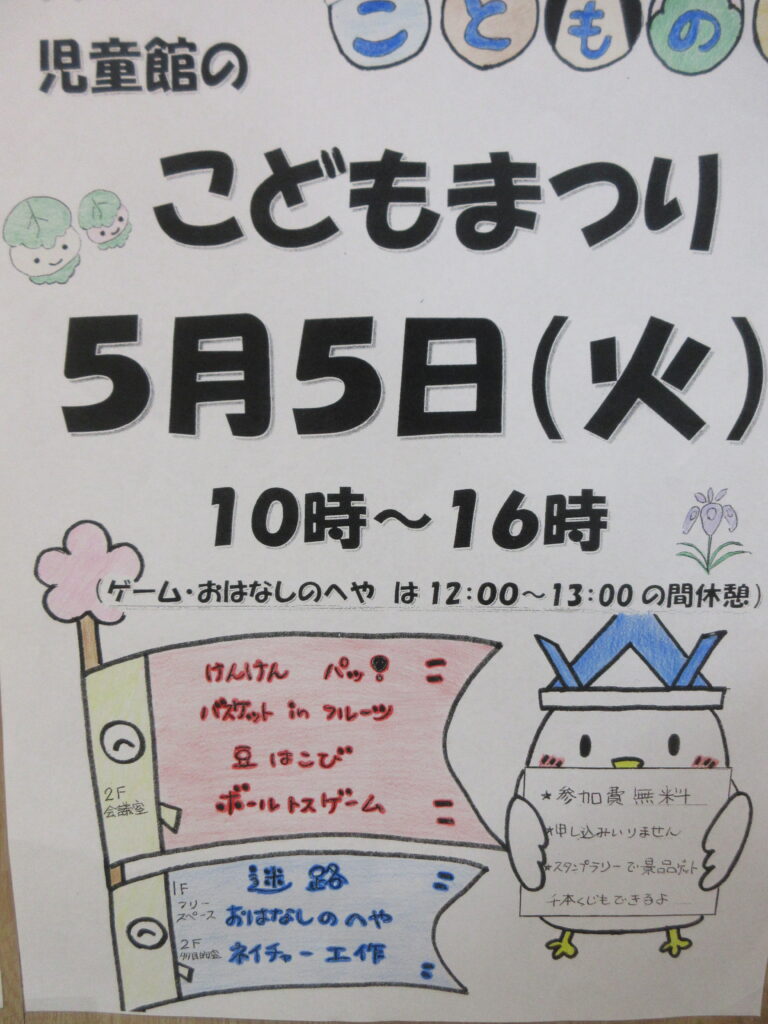 こどもの
児童館の
こどもまつり
5月5日(火)
10時～16時
(ゲーム・おはなしのへや は 12:00～13:00 の間休憩)
けんけん パッ!
バスケット in フルーツ
豆はこび
ボールトスゲーム
2F
会議室
迷路
おはなしのへや
ネイチャー工作
1F
フリー
スペース
2F
多目的室
★参加費無料
★申し込みいりません
★スタンプラリーで景品ゲット
千本くじもできるよ